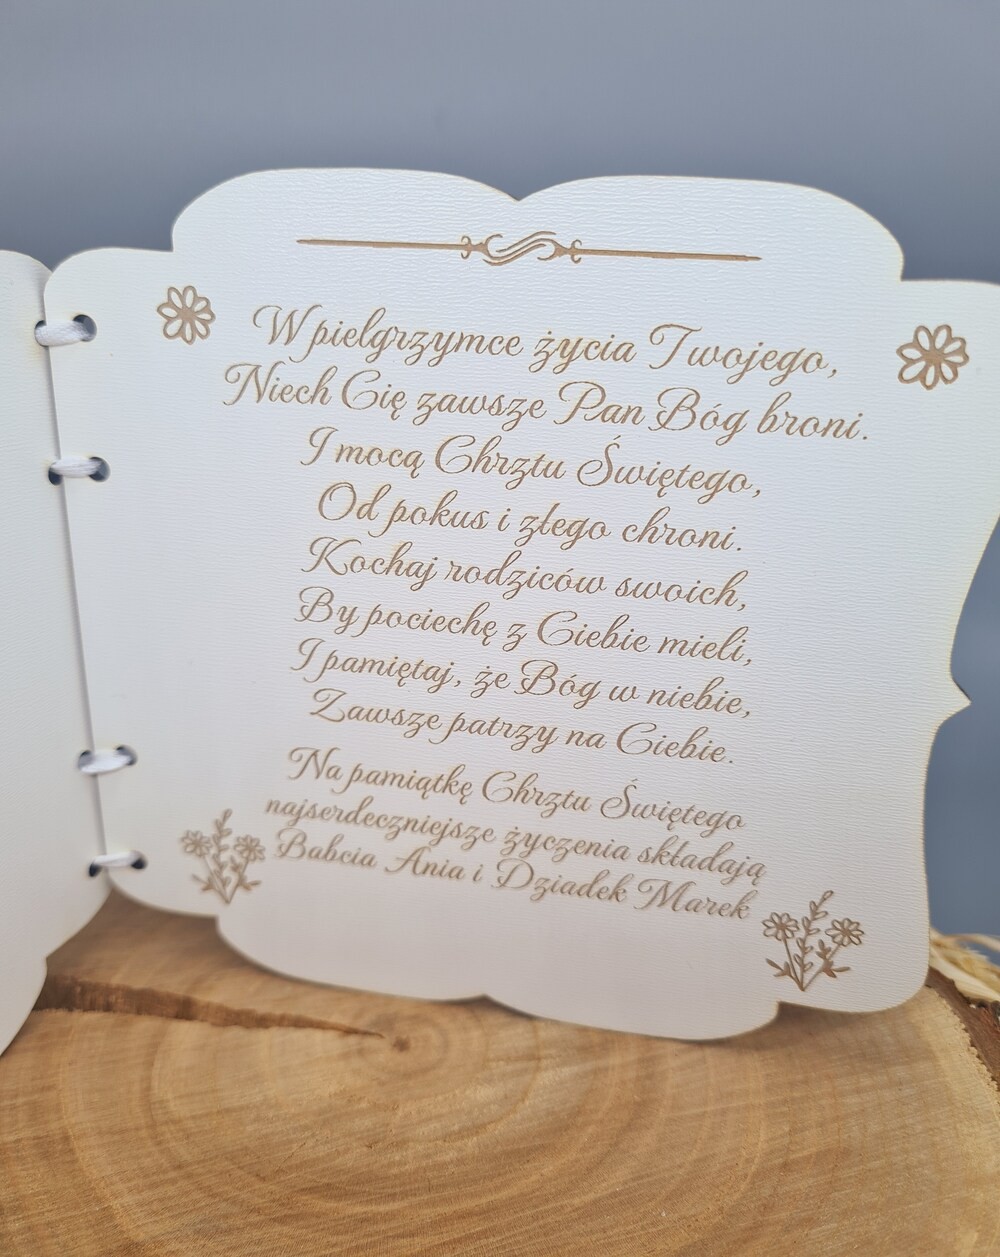 W pielgrzymce życia Twojego,
Niech Cię zawsze Pan Bóg broni.
I mocą Chrztu Świętego,
Od pokus i złego chroni.
Kochaj rodziców swoich,
By pociechę z Ciebie mieli,
I pamiętaj, że Bóg w niebie,
Zawsze patrzy na Ciebie.
Na pamiątkę Chrztu Świętego
najserdeczniejsze życzenia składają
Babcia Ania i Dziadek Marek